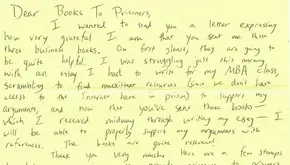 Dear Books To Prisoners,
I wanted to send you a letter expressing
how very grateful I am that you sent me these
three business books. On first glance, they are going to
be quite helpful. I was struggling just this morning
with an essay I had to write for my MBA class,
scrambling to find resources (since we don't have
access to the Internet here in prison) to support my
arguments, and now that you've sent these books—
which I received midway through writing my essay—I
will be able to properly support my arguments with
references. The books are quite relevant.
Thank you very much. Here are a few stamps